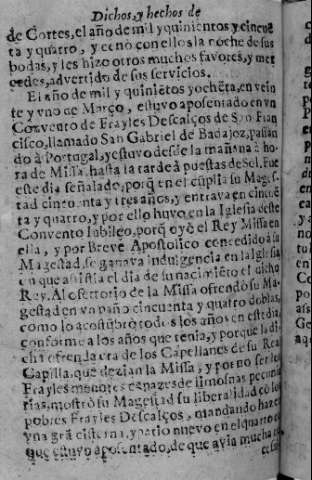 Dichos, y hechos de
de Cortes, el año de mil y quinientos y cincuē
ta y quatro, y cenò con ellos la noche de sus
bodas, y les hizo otros muchos fauores, y mer
cedes, aduertido de sus seruicios.
El año de mil y quiniētos yochēta, en vein
te y vno de Março, estuuo aposentado en vn
Conuento de Frayles Descalços de San Fran
cisco, llamado San Gabriel de Badajoz, passan
do à Portugal, y estuuo desde la mañana à ho-
ra de Missa, hasta la tarde à puestas de Sol. Fue
este dia señalado, porq̃ en el cūplia su Mages-
tad cincuenta y tres años, y entraua en cincuē
ta y quatro, y por ello huuo en la Iglesia deste
Conuento Iubileo, porq̃ oyò el Rey Missa en
ella, y por Breue Apostolico concedido à su
Magestad, se ganaua indulgencia en la Iglesia
en que assistia el dia de su nacimiēto el dicho
Rey. Al ofertorio de la Missa ofrendò su Ma-
gestad en vn paño cincuenta y quatro doblas,
como lo acostūbrò todos los años en este dia,
conforme a los años que tenia, y porque la di-
cha ofrenda era de los Capellanes de su Real
Capilla, que dezian la Missa, y por no ser los
Frayles menores capazes de limosnas pecunia
rias, mostrò su Magestad su liberalidad cõ los
pobres Frayles Descalços, mandando hazer
vna grã cisterna, y patio nueuo en el quarto
que estuuo aposentado, de que auia mucha